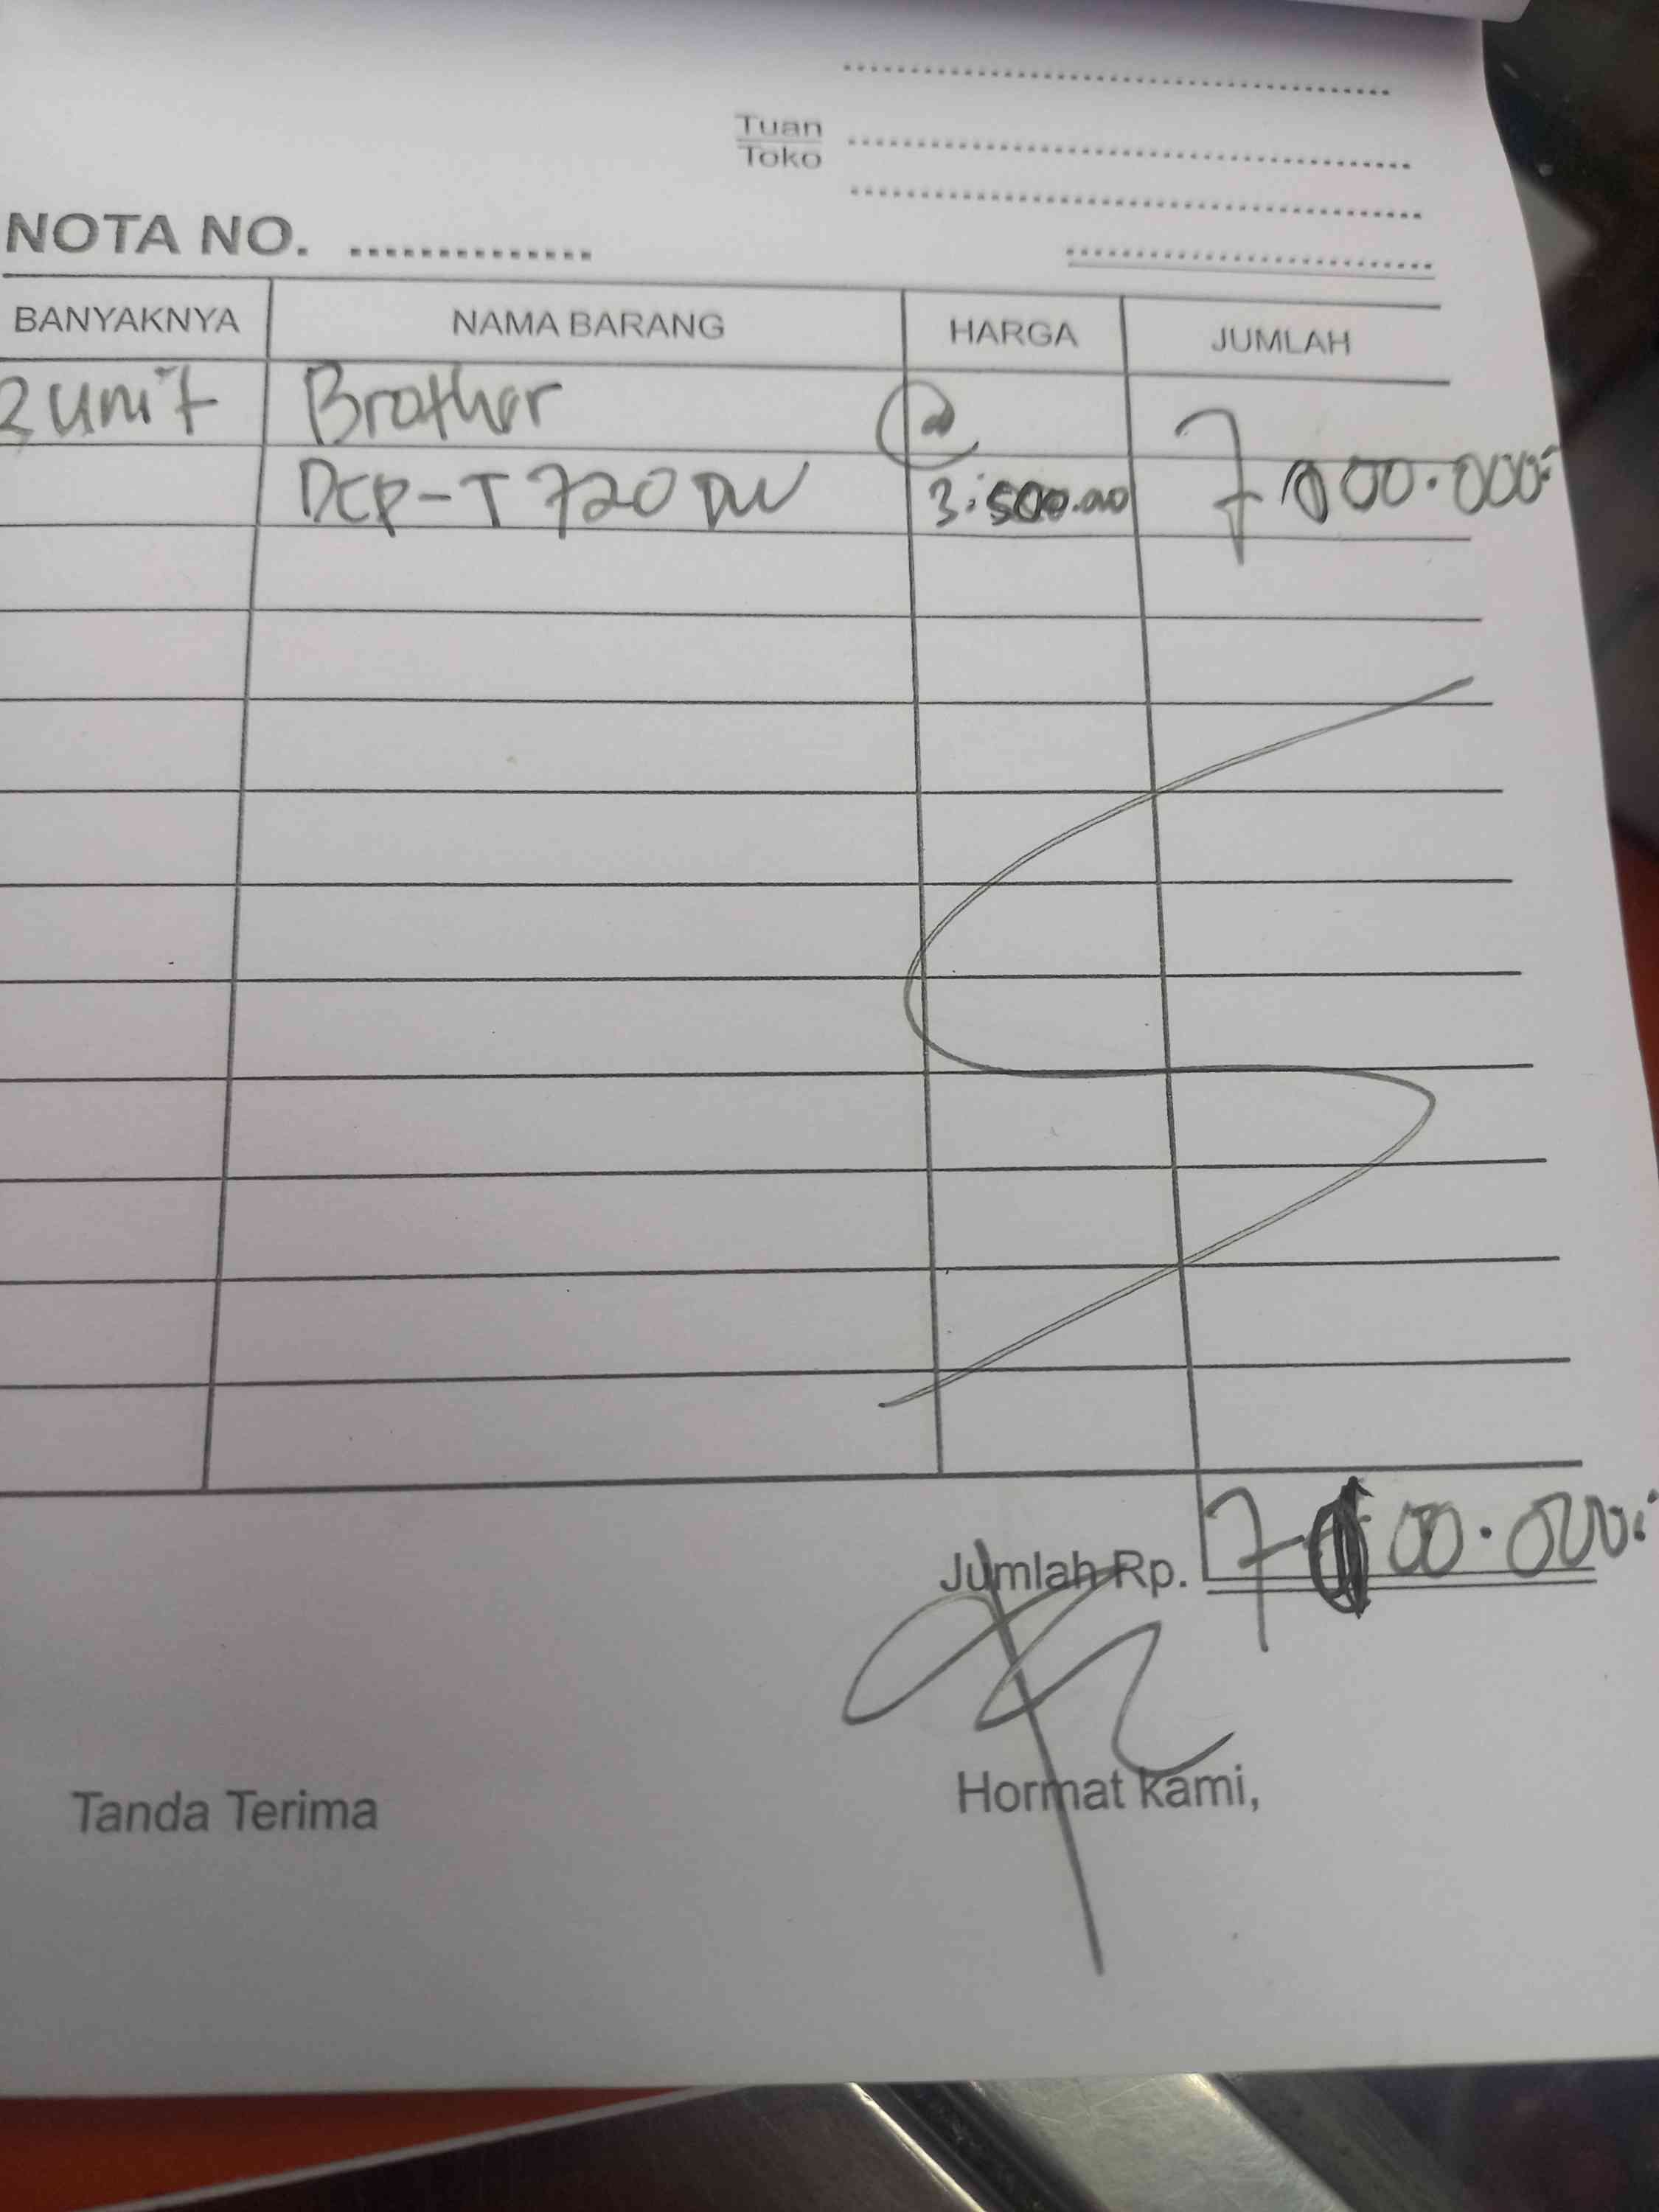 Tuan
Toko
NOTA NO. ..............
BANYAKNYA NAMA BARANG HARGA JUMLAH
2 unit Brother @
DCP-T 720 DW 3.500.000 7.000.000:
Jumlah Rp. 7.000.000:
Tanda Terima Hormat Kami,